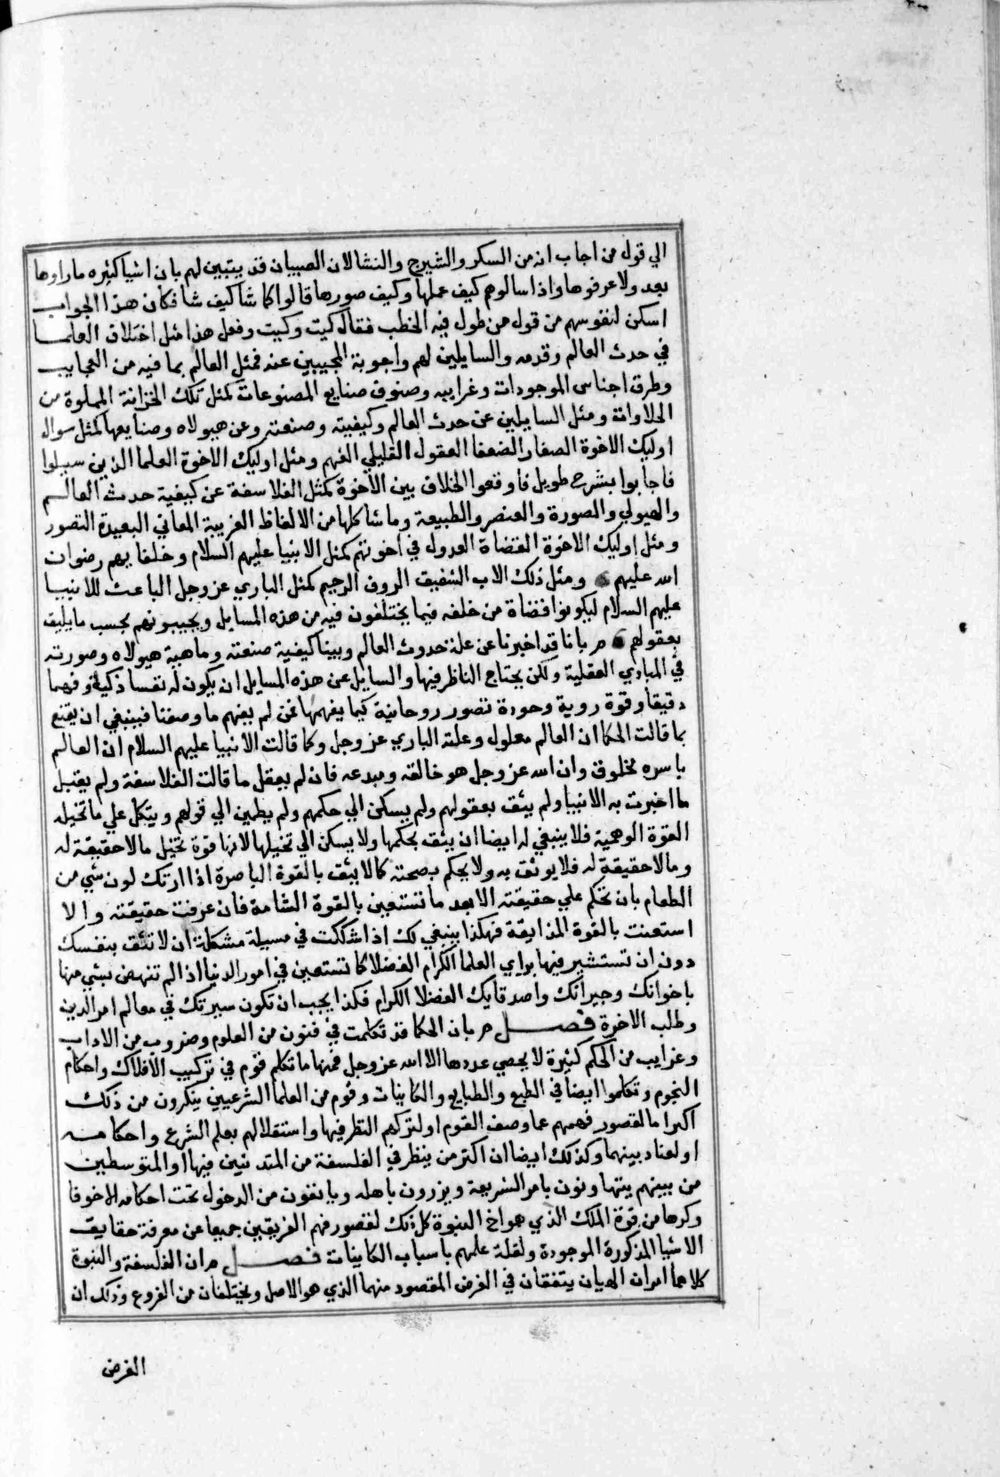 الي قول من اجاب انه من السكر والشيرج والنشا لان الصبيان قد يتبين لهم بان اشيا كثيره ما راوها
بعد ولا عرفوها واذا سالوهم كيف عملها وكيف صورها قالوا كما شا كيف شا فكان هذا الجواب
اسكن لنفوسهم من قول من طول فيه الخطب فقال كيت وكيت وفعل هذا مثل اختلاف العلما
في حدث العالم وقدمه والسايلين لهم واجوبة المجيبين عنه فمثل العالم بما فيه من العجايب
وطرق اجناس الموجودات وغرايبه وصنوف صنايع المصنوعات كمثل تلك الخزانة المملوة من
الحلاوات ومثل السايلين عن حدث العالم وكيفيته وصنعته وعن هيولاه وصنايعها كمثل سوال
اوليك الاخوة الصغار الضعفا العقول القليلي الفهم ومثل اوليك الاخوة العلما الذين سيلوا
فاجابوا بشرح طويل فاوقعوا الخلاف بين الاخوة كمثل الفلاسفة عن كيفية حدث العالم
والهيولي والصورة والعنصر والطبيعة وما شاكلها من الالفاظ الغريبة المعاني البعيدة التصور
ومثل اوليك الاخوة القضاة العدول في اخوتهم كمثل الانبيا عليهم السلام وخلفايهم رضوان
الله عليهم ومثل ذلك الاب الشفيق الروف الرحيم كمثل الباري عز وجل الباعث للانبيا
عليهم السلام ليكونوا قضاة من خلفه فيما يختلفون فيه من هذه المسايل ويجيبونهم بحسب ما يليق
بعقولهم م ر بانا قد اخبرنا عن علة حدوث العالم وبينا كيفية صنعته وماهية هيولاه وصورته
في المبادي العقلية ولكن يحتاج الناظر فيها والسايل عن هذه المسايل ان يكون له نفسا ذكية وفهما
دقيقا وقوة روية وجودة تصور روحانية كيما يفهمها فمن لم يفهم ما وصفنا فينبغي ان يقنع
بما قالت الحكما ان العالم معلول وعلته الباري عز وجل وكما قالت الانبيا عليهم السلام ان العالم
باسره مخلوق وان الله عز وجل هو خالقه ومبدعه فان لم يعقل ما قالت الفلاسفة ولم يقبل
ما اخبرت به الانبيا ولم يثق بعقولهم ولم يسكن الي حكمهم ولم يطمين الي قولهم ويتكل علي ما تخيله
القوة الوهمية فلا ينبغي له ايضا ان يثق بحكمها ولا يسكن الي تخيلها لانها قوة تخيل ما لا حقيقة له
وما لا حقيقة له فلا يوثق به ولا يحكم بصحته كما لا يثق بالقوة الباصرة اذا ارتك لون شي من
الطعام بان تحكم علي حقيقته الا بعد ما تستعين بالقوة الشامة فان عرفت حقيقته والا
استعنت بالقوة الذايقة فهكذا ينبغي لك اذا شككت في مسيلة مشكلة ان لا تثق بنفسك
دون ان تستشير فيها براي العلما الكرام الفضلا كما تستعين في امور الدنيا اذا لم تنهض بشي منها
باخوانك وجيرانك واصدقايك الفضلا الكرام فكذا يجب ان تكون سيرتك في معالم امر الدين
وطلب الاخرة فصل م ر بان الحكما قد تكلمت في فنون من العلوم وضروب من الاداب
وغرايب من الحكم كثيرة لا يحصي عددها الا الله عز وجل فمنها ما تكلم قوم في تركيب الافلاك واحكام
النجوم وتكلموا ايضا في الطبع والطبايع والكاينات وقوم من العلما الشرعيين ينكرون من ذلك
اكبرا ما لقصور فهمهم عما وصف القوم او لتركهم النظر فيها واستقلالهم بعلم الشرع واحكامه
او لعناد بينهما وكذلك ايضا ان اكثر من ينظر في الفلسفة من المتدينين فيها او المتوسطين
من بينهم يتهاونون بامر الشريعة ويزرون باهله ويانفون من الدخول تحت احكامه الا خوفا
وكرها من قوة الملك الذي هو اخ النبوة كل ذلك لقصور فهم الفريقين جميعا عن معرفة حقايق
الاشيا المذكورة الموجودة ولقلة علمهم باسباب الكاينات فصل م ر ان الفلسفة والنبوة
كلاهما امران الهيان يتفقان في الغرض المقصود منهما الذي هو الاصل ويختلفان من الفروع وذلك ان
الغرض